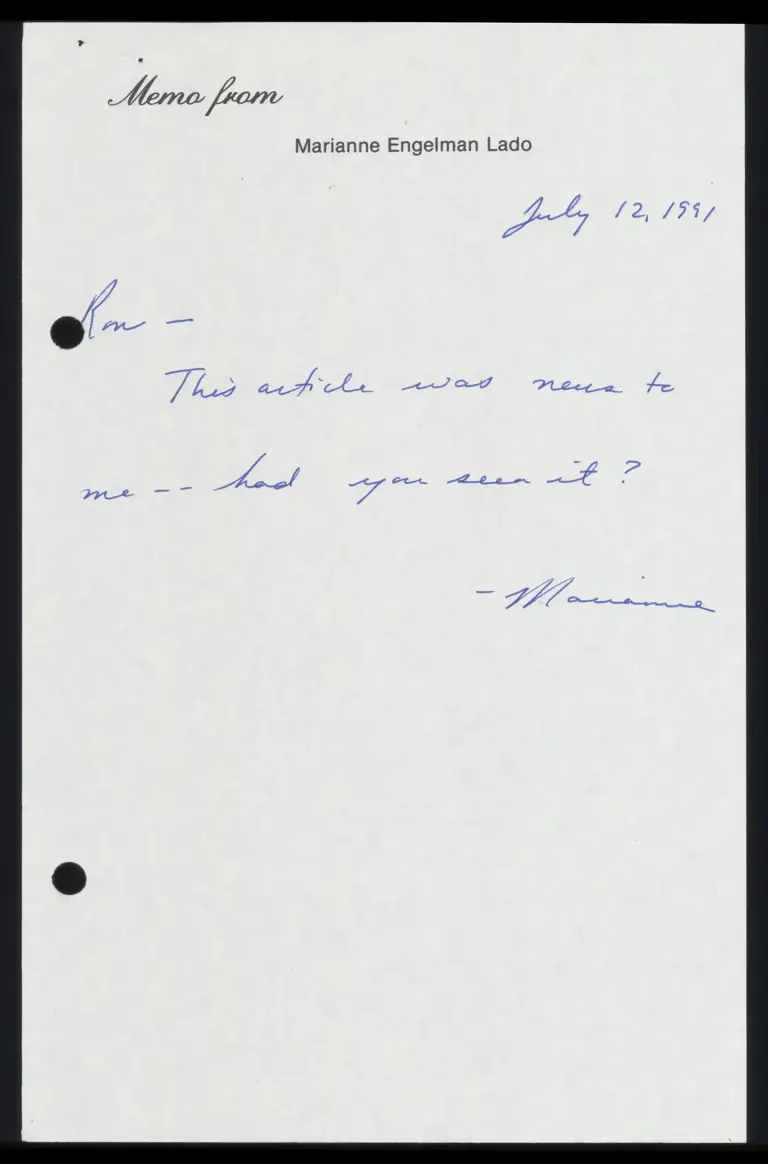 Memo from
Marianne Engelman Lado
July 12, 1991
Ron —
This article was news to
me -- had you seen it?
- Marianne